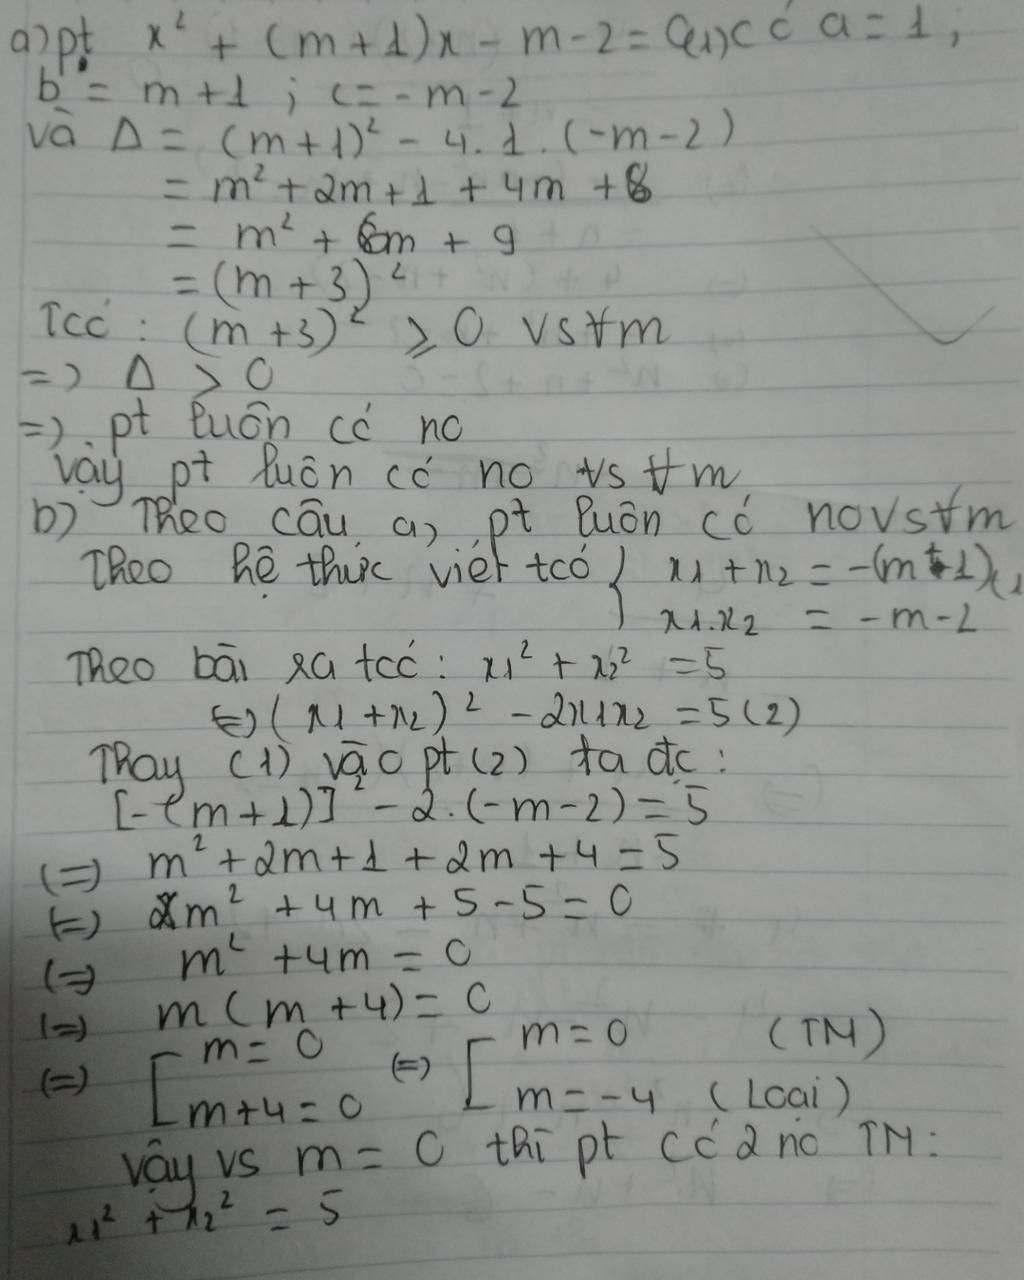 a) pt x² + (m+1)x - m - 2 = 0(1) có a = 1;
b = m+1; c = -m-2
và Δ = (m+1)² - 4.1.(-m-2)
= m² + 2m + 1 + 4m + 8
= m² + 6m + 9
= (m+3)²
Tcó: (m+3)² ⩾ 0 vs ∀m
=> Δ > 0
=> pt luôn có no
vậy pt luôn có no vs ∀m
b) Theo câu a, pt luôn có no vs ∀m
Theo hệ thức viét tcó { x1 + x2 = -(m+1) (1
x1.x2 = -m-2
Theo bài ra tcó: x1² + x2² = 5
(=) (x1+x2)² - 2x1x2 = 5 (2)
Thay (1) vào pt (2) ta đc:
[-(m+1)]² - 2.(-m-2) = 5
(=) m² + 2m + 1 + 2m + 4 = 5
(=) m² + 4m + 5 - 5 = 0
(=) m² + 4m = 0
(=) m(m+4) = 0
(=) [ m = 0 (=) [ m = 0 (TM)
m+4 = 0 m = -4 (Loại)
vậy vs m = 0 thì pt có 2 no TM:
x1² + x2² = 5